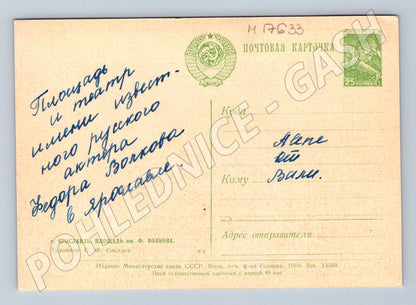 И 7633
ПОЧТОВАЯ КАРТОЧКА
25
Площадь
и театр
имени извест-
ного русского
актера
Федора Волкова
в Ярославле.
Куда
Асе
от
Вали.
Кому
Адрес отправителя:
г. ЯРОСЛАВЛЬ. ПЛОЩАДЬ им. Ф. ВОЛКОВА.
Издание Министерства связи СССР. Моск. печ. ф-ка Гознака. 1960. Зак. 14568.
Цена художественной карточки с маркой 40 коп
POHLEDNICE - GASH